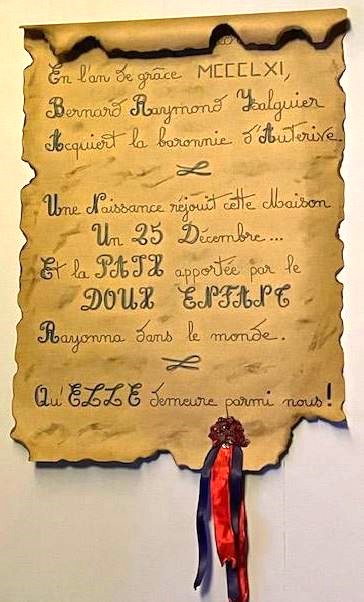 En l'an de grâce MCCCLXI,
Bernard Raymond Ysalguier
Acquiert la baronnie d'Auterive.
Une Naissance réjouit cette Maison
Un 25 Décembre...
Et la PAIX apportée par le
DOUX ENFANT
Rayonna dans le monde.
Qu'ELLE demeure parmi nous!